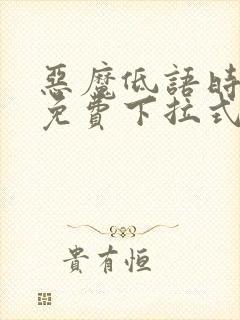 惡魔低語時
免費下拉式
貴有恒